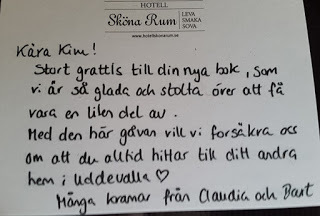 HOTELL
Sköna Rum
LEVA
SMAKA
SOVA
www.hotellskonarum.se
Kära Kim!
Stort grattis till din nya bok, som
vi är så glada och stolta över att få
vara en liten del av.
Med den här gåvan vill vi försäkra oss
om att du alltid hittar till ditt andra
hem i Uddevalla ♡
Många kramar från Claudia och Bart